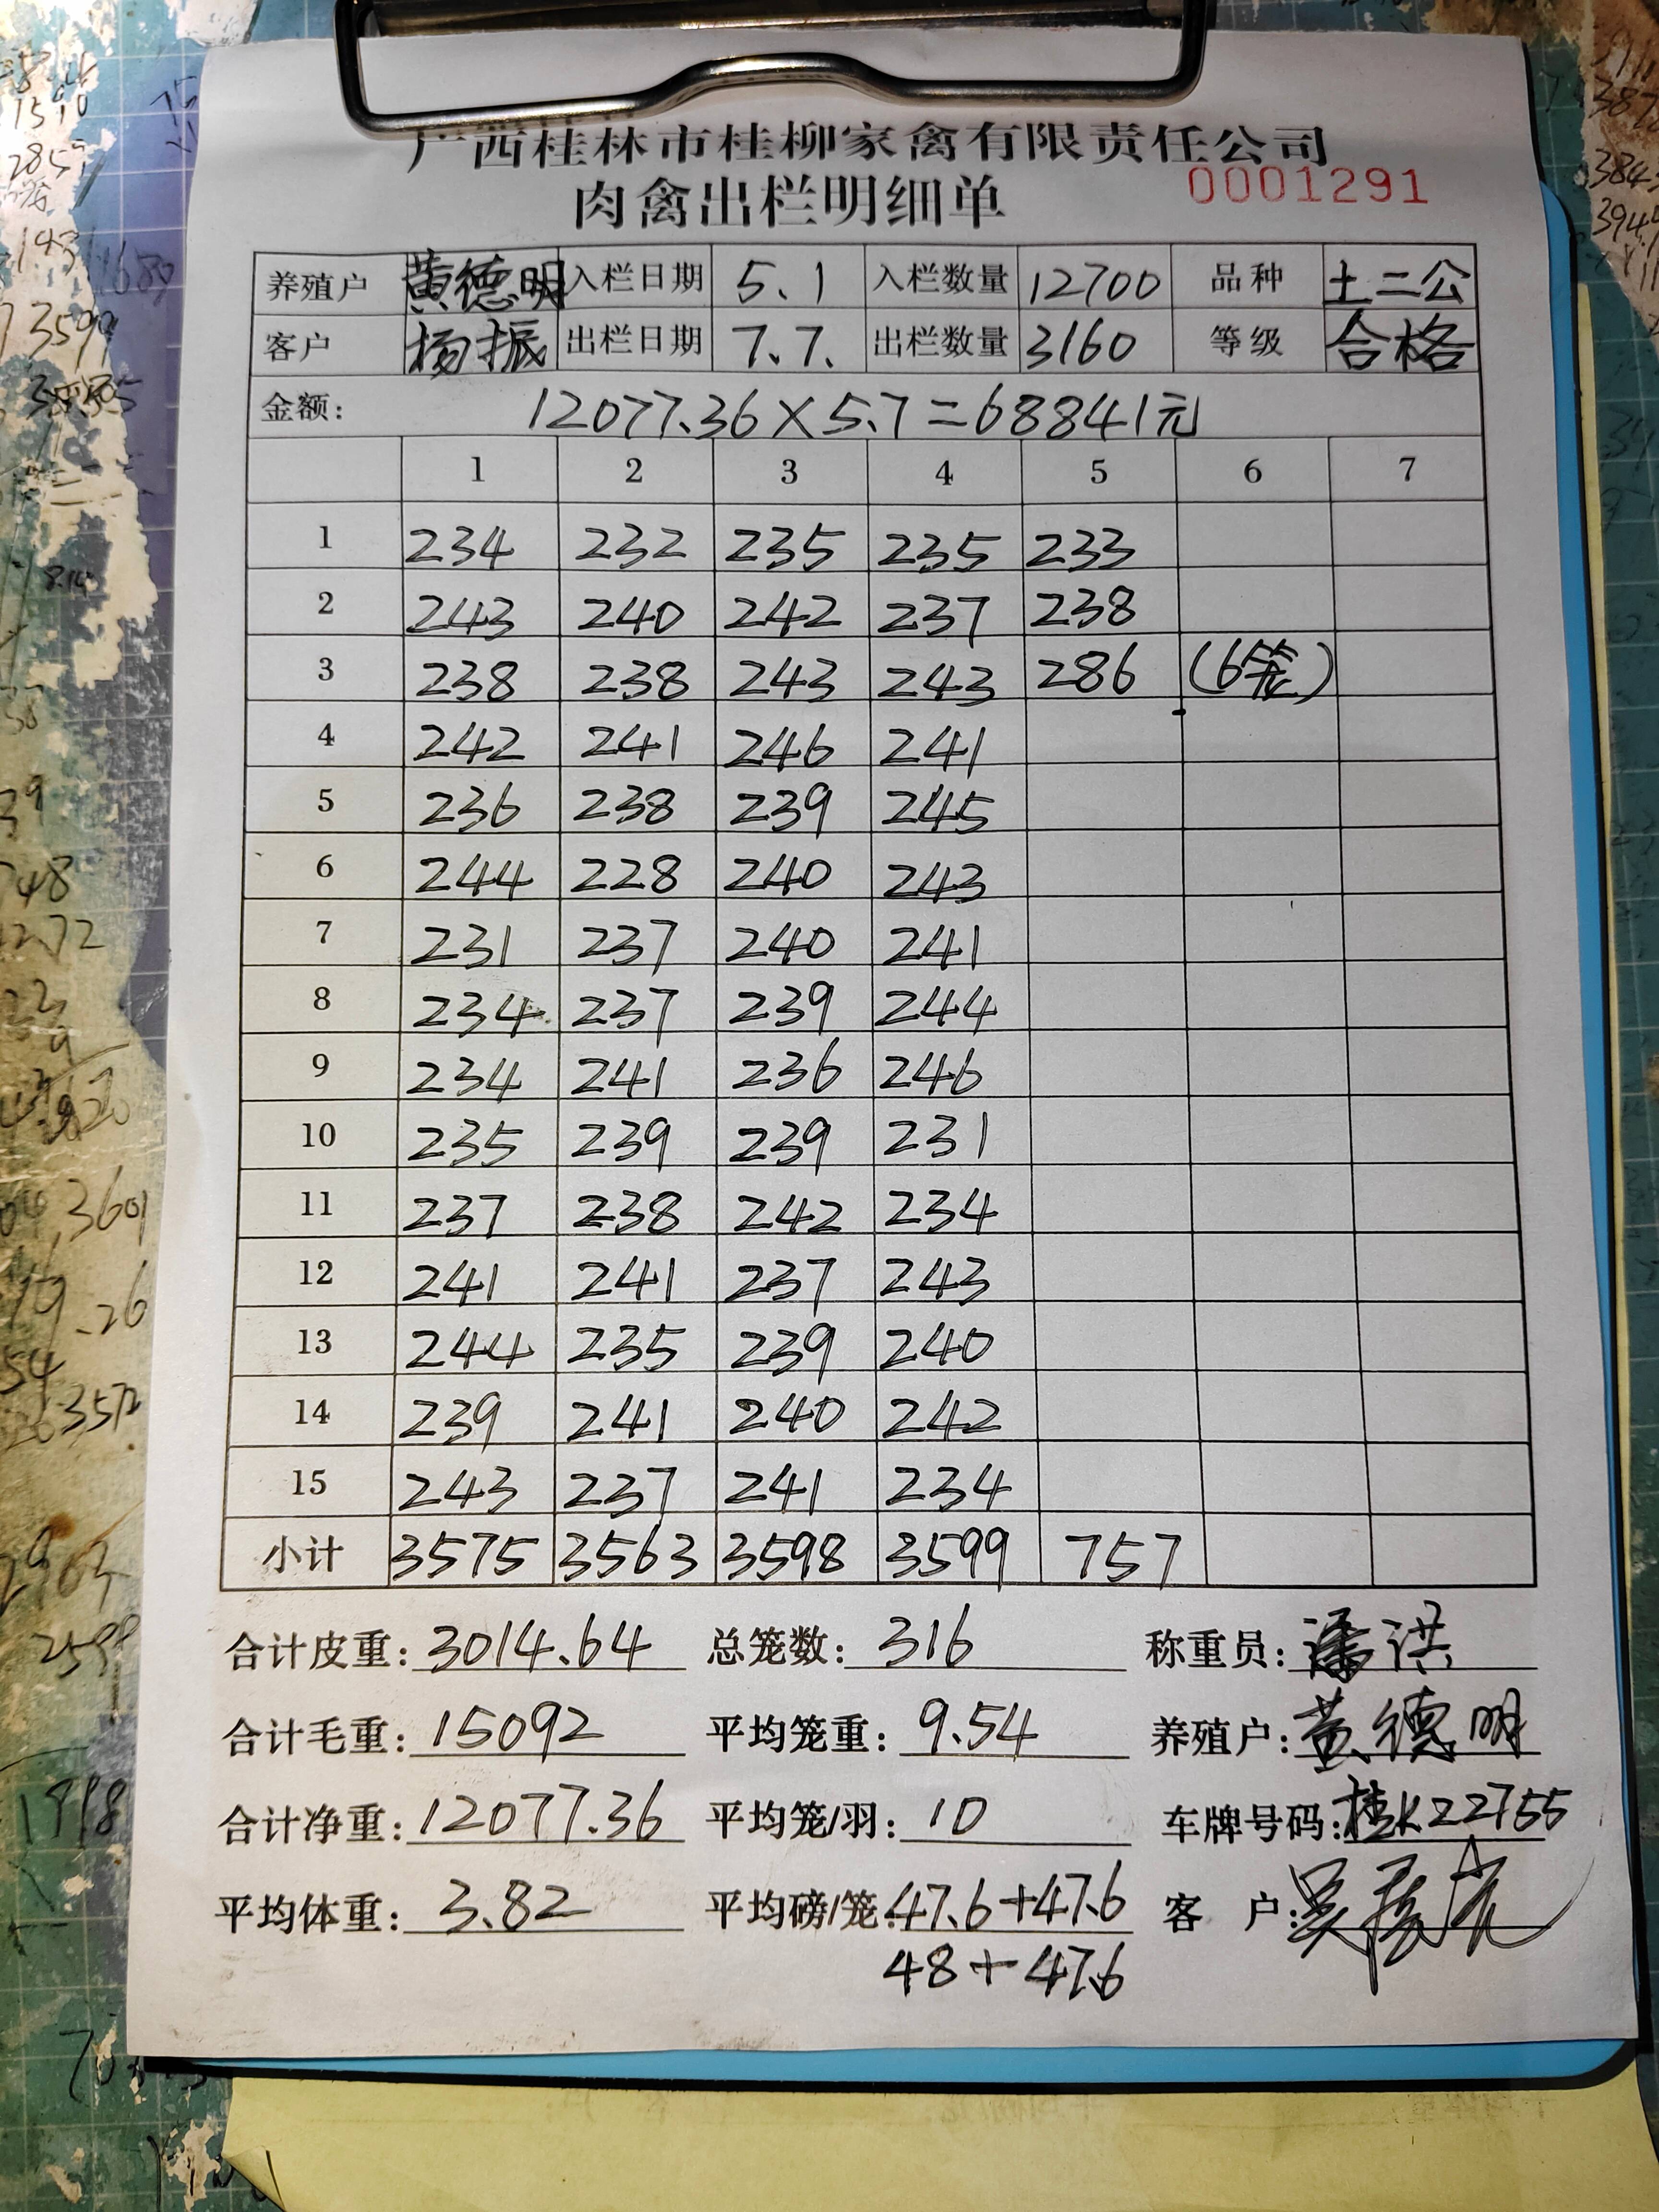 广西桂林市桂柳家禽有限责任公司
肉禽出栏明细单 0001291
养殖户 黄德明 入栏日期 5.1 入栏数量 12700 品种 土二公
客户 杨振 出栏日期 7.7. 出栏数量 3160 等级 合格
金额: 12077.36×5.7=68841元
1 2 3 4 5 6 7
1 234 232 235 235 233
2 243 240 242 237 238
3 238 238 243 243 286 (6笼)
4 242 241 246 241
5 236 238 239 245
6 244 228 240 243
7 231 237 240 241
8 234 237 239 244
9 234 241 236 246
10 235 239 239 231
11 237 238 242 234
12 241 241 237 243
13 244 235 239 240
14 239 241 240 242
15 243 237 241 234
小计 3575 3563 3598 3599 757
合计皮重: 3014.64 总笼数: 316 称重员: 潘洪
合计毛重: 15092 平均笼重: 9.54 养殖户: 黄德明
合计净重: 12077.36 平均笼/羽: 10 车牌号码: 桂K22755
平均体重: 3.82 平均磅/笼: 47.6+47.6 客 户:
48+47.6